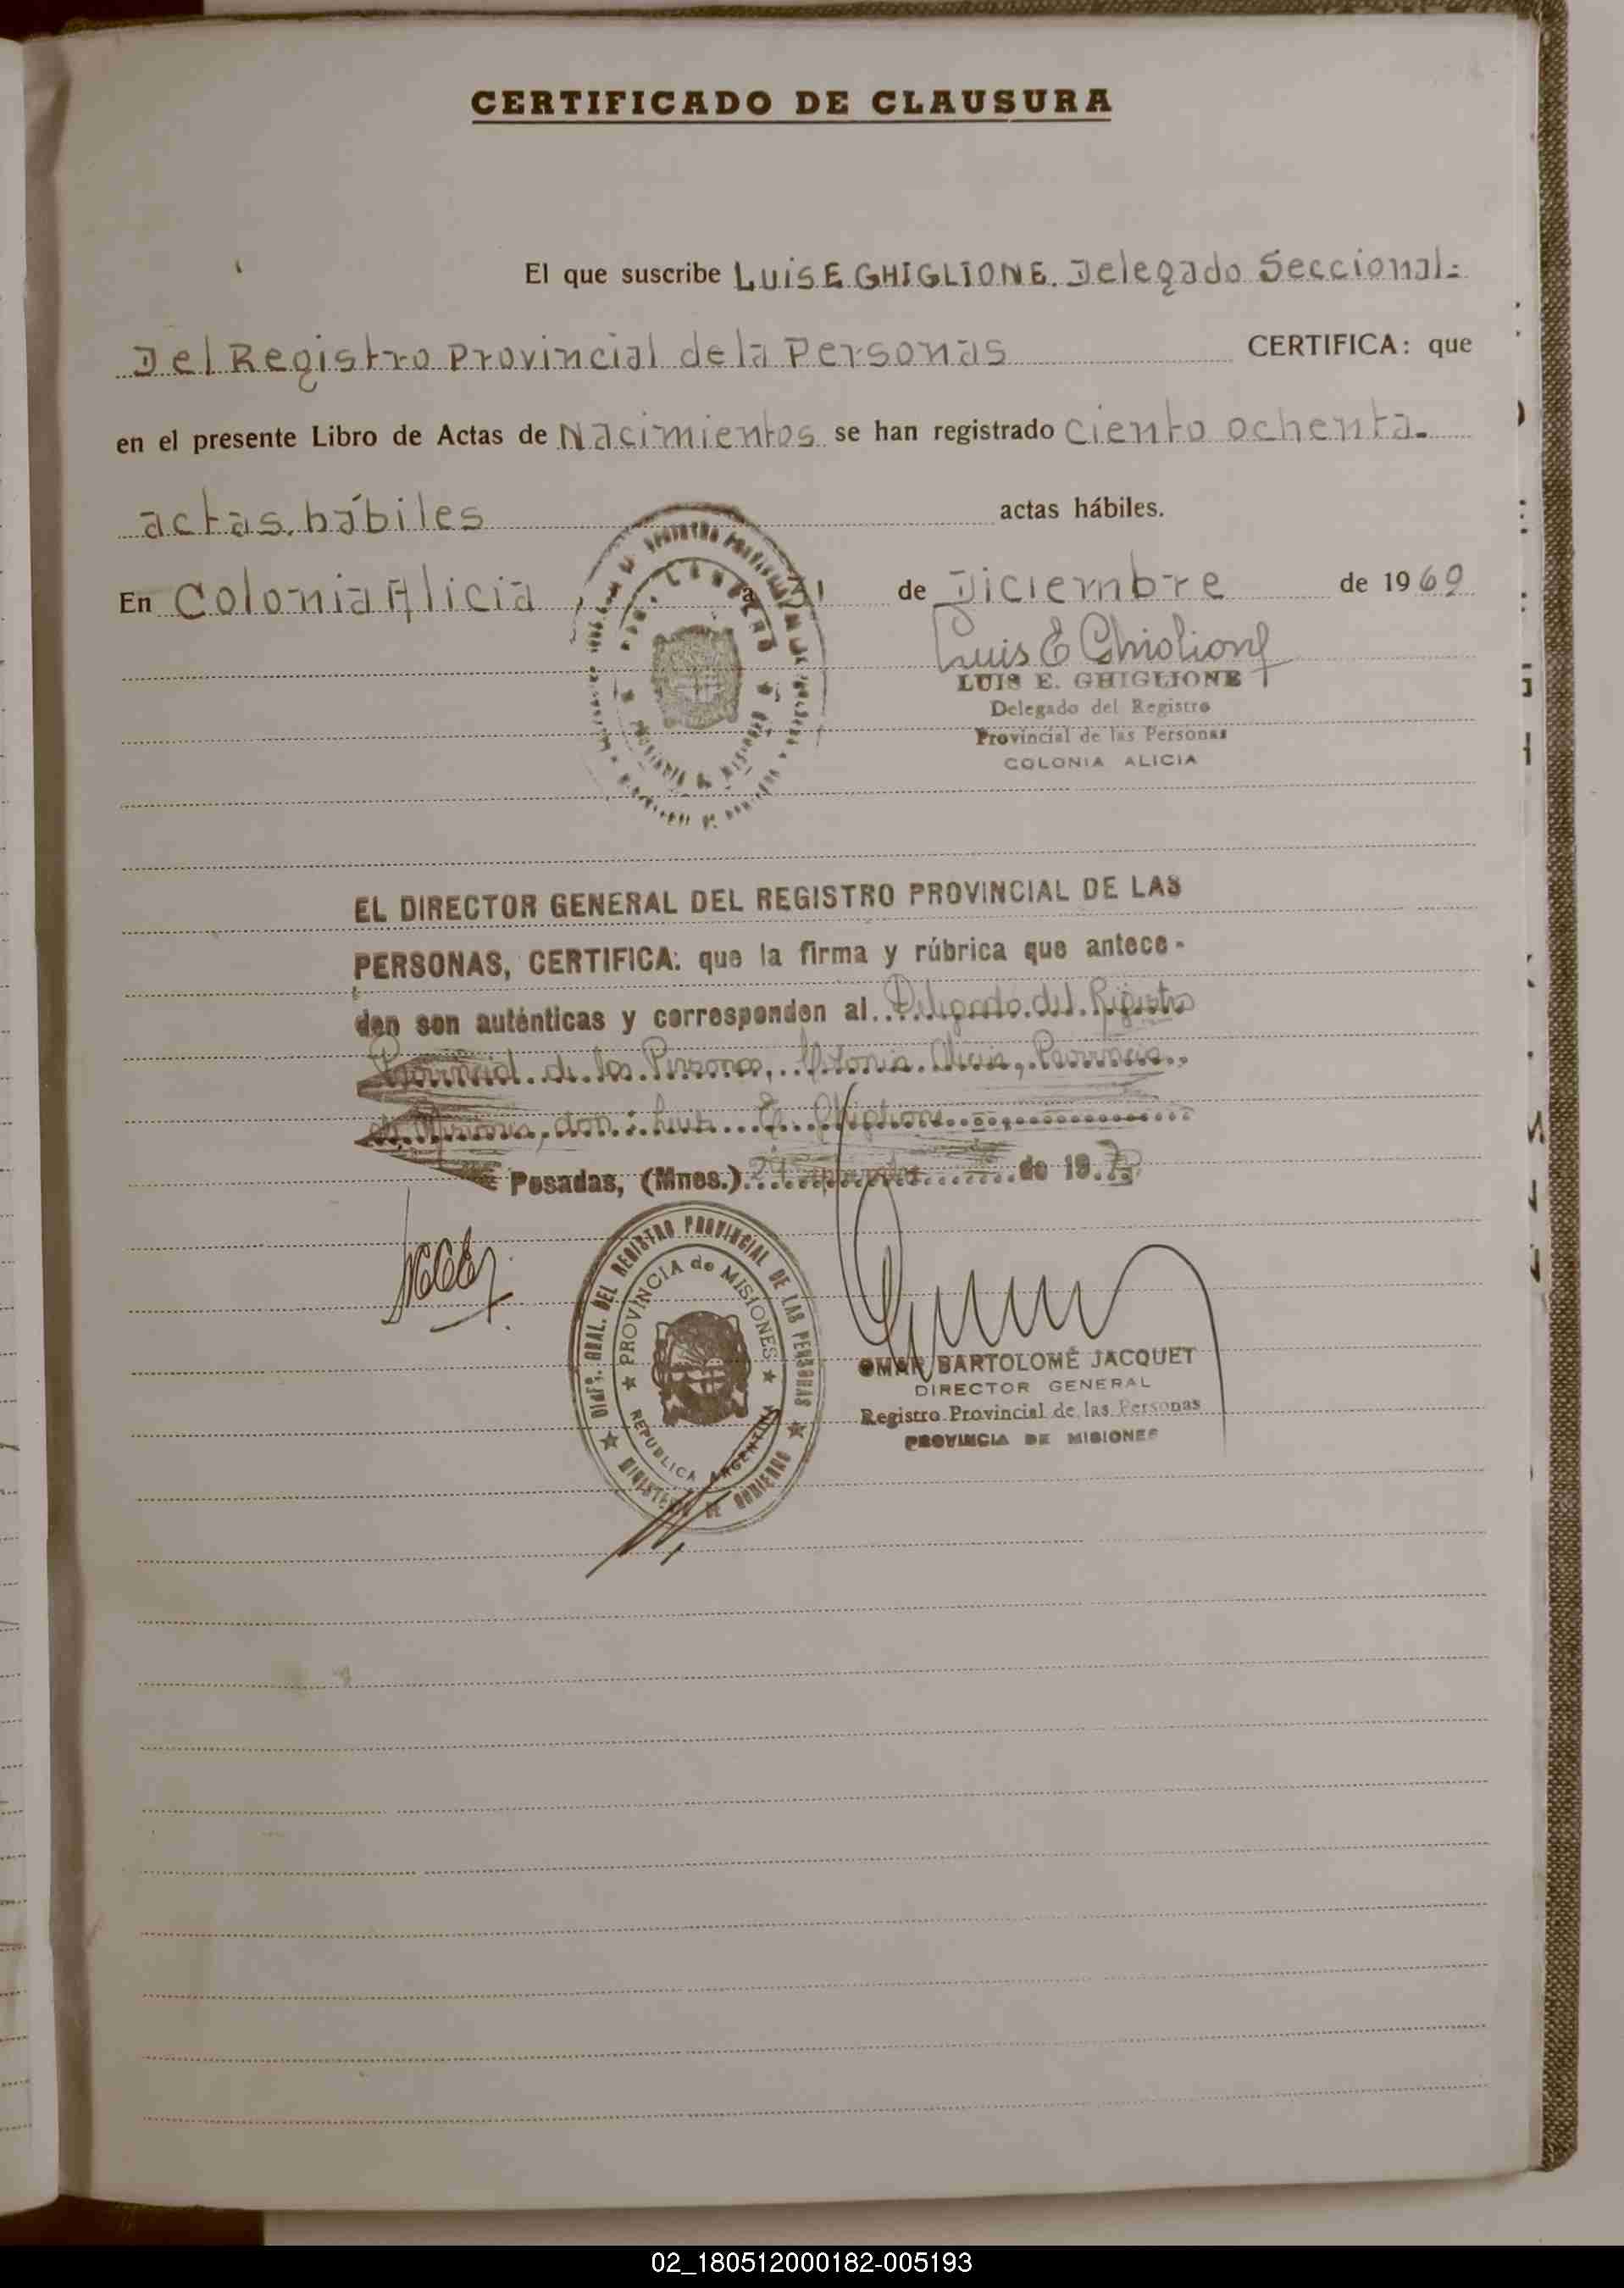 CERTIFICADO DE CLAUSURA
El que suscribe LUIS E GHIGLIONE. Delegado Seccional-
Del Registro Provincial de la Personas CERTIFICA: que
en el presente Libro de Actas de Nacimientos se han registrado ciento ochenta-
actas hábiles actas hábiles.
En Colonia Alicia, a 31 de Diciembre de 1969
Luis E Ghiglione
LUIS E. GHIGLIONE
Delegado del Registro
Provincial de las Personas
COLONIA ALICIA
EL DIRECTOR GENERAL DEL REGISTRO PROVINCIAL DE LAS
PERSONAS, CERTIFICA: que la firma y rúbrica que antece-
den son auténticas y corresponden al Delegado del Registro
Provincial de las Personas, Colonia Alicia, Provincia
de Misiones, don: Luis E. Ghiglione
Posadas, (Mnes.) de 19
DIRº. GRAL. DEL REGISTRO PROVINCIAL DE LAS PERSONAS
PROVINCIA de MISIONES
REPUBLICA ARGENTINA
MINISTERIO DE GOBIERNO
OMAR BARTOLOMÉ JACQUET
DIRECTOR GENERAL
Registro Provincial de las Personas
PROVINCIA DE MISIONES
02_180512000182-005193